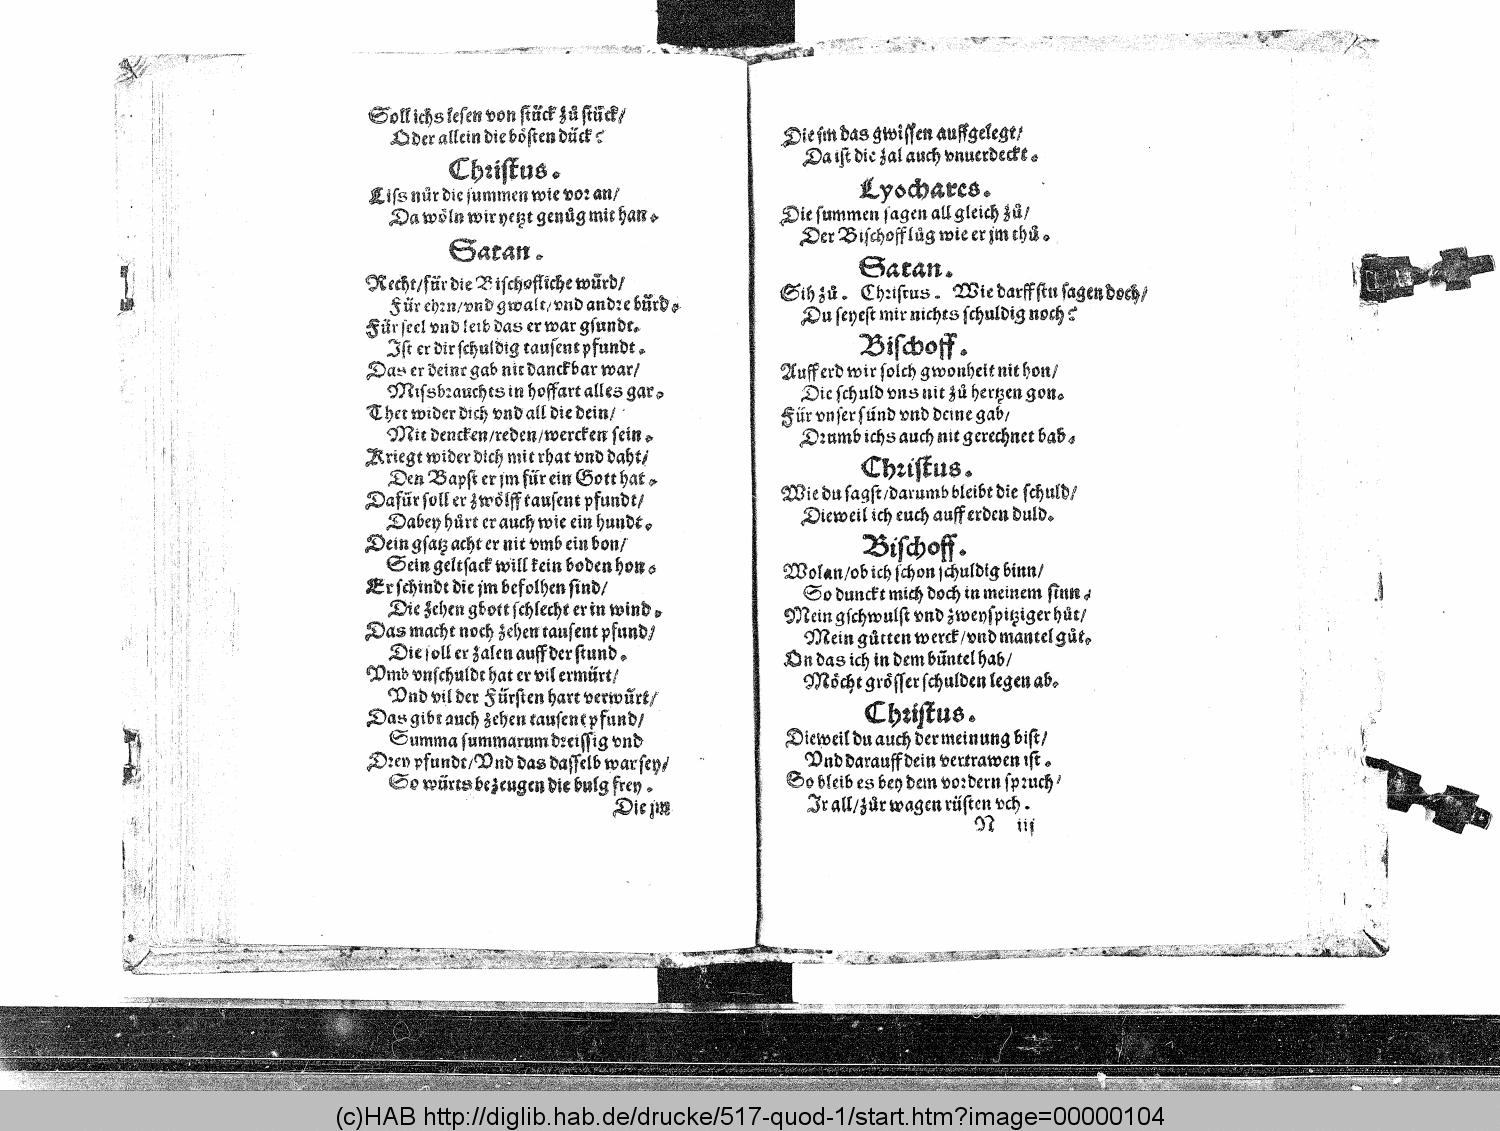 Soll ichs lesen von stück zů stück/
Oder allein die bösten dück?
Christus.
Liss nůr die summen wie vor an/
Da wöln wir yetzt genůg mit han.
Satan.
Recht/für die Bischofliche würd/
Für ehrn/vnd gwalt/vnd andre bürd.
Für seel vnd leib das er war gsundt.
Ist er dir schuldig tausent pfundt.
Das er deinr gab nit danckbar war/
Missbrauchts in hoffart alles gar.
Thet wider dich vnd all die dein/
Mit dencken/reden/wercken sein.
Kriegt wider dich mit rhat vnd daht/
Den Bapst er jm für ein Gott hat.
Dafür soll er zwölff tausent pfundt/
Dabey hürt er auch wie ein hundt.
Dein gsatz acht er nit vmb ein bon/
Sein geltsack will kein boden hon.
Er schindt die jm befolhen sind/
Die zehen gbott schlecht er in wind.
Das macht noch zehen tausent pfund/
Die soll er zalen auff der stund.
Vmb vnschuldt hat er vil ermürt/
Vnd vil der Fürsten hart verwürt/
Das gibt auch zehen tausent pfund/
Summa summarum dreissig vnd
Drey pfundt/Vnd das dasselb war sey/
So würts bezeugen die bulg frey.
Die jm
Die jm das gwissen auffgelegt/
Da ist die zal auch vnuerdeckt.
Lyochares.
Die summen sagen all gleich zů/
Der Bischoff lůg wie er jm thů.
Satan.
Sih zů. Christus. Wie darffstu sagen doch/
Du seyest mir nichts schuldig noch?
Bischoff.
Auff erd wir solch gwonheit nit hon/
Die schuld vns nit zů hertzen gon.
Für vnser sünd vnd deine gab/
Drumb ichs auch nit gerechnet hab.
Christus.
Wie du sagst/darumb bleibt die schuld/
Dieweil ich euch auff erden duld.
Bischoff.
Wolan/ob ich schon schuldig binn/
So dunckt mich doch in meinem sinn.
Mein gschwulst vnd zweyspitziger hůt/
Mein gůtten werck/vnd mantel gůt.
On das ich in dem büntel hab/
Möcht grösser schulden legen ab.
Christus.
Dieweil du auch der meinung bist/
Vnd darauff dein vertrawen ist.
So bleib es bey dem vordern spruch/
Ir all/zůr wagen rüsten vch.
N iij
(c)HAB http://diglib.hab.de/drucke/517-quod-1/start.htm?image=00000104